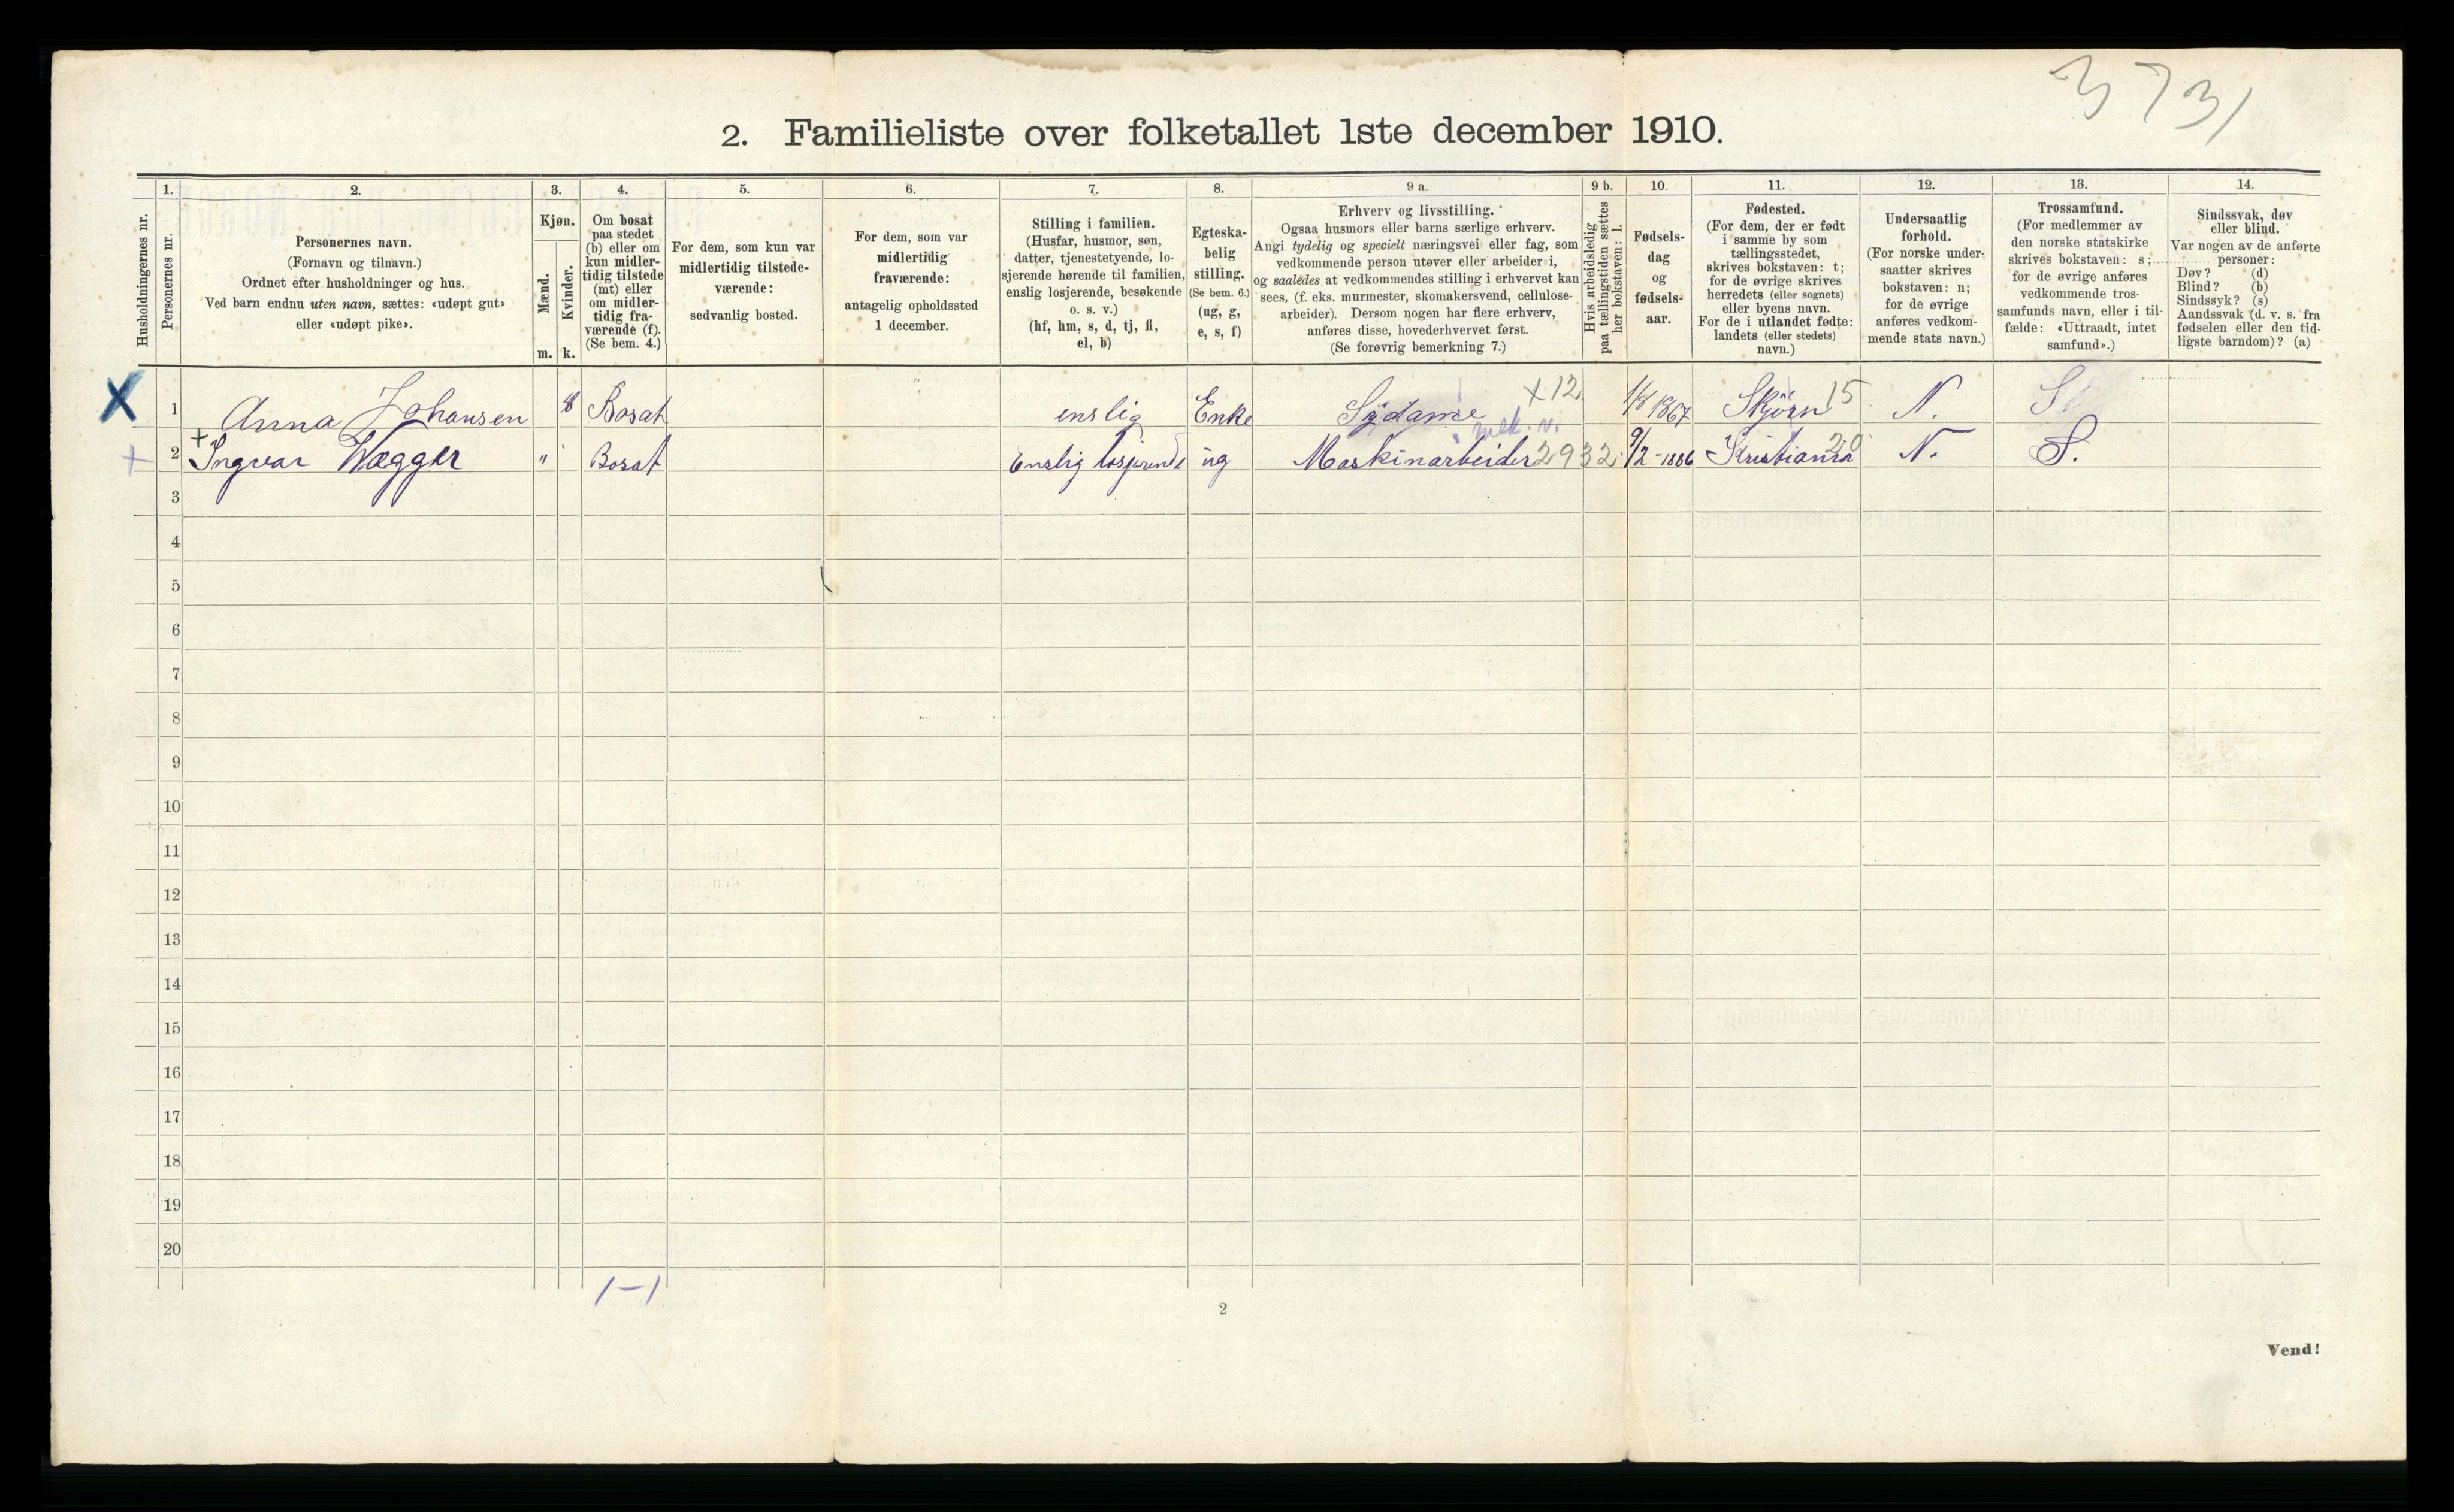 3731
2. Familieliste over folketallet 1ste december 1910.
1. 2. 3. 4. 5. 6. 7. 8. 9 a. 9 b. 10. 11. 12. 13. 14.
Husholdningernes nr.
Personernes nr.
Personernes navn.
(Fornavn og tilnavn.)
Ordnet efter husholdninger og hus.
Ved barn endnu uten navn, sættes: «udøpt gut»
eller «udøpt pike».
Kjøn.
Mænd.
Kvinder.
m. k.
Om bosat
paa stedet
(b) eller om
kun midler-
tidig tilstede
(mt) eller
om midler-
tidig fra-
værende (f).
(Se bem. 4.)
For dem, som kun var
midlertidig tilstede-
værende:
sedvanlig bosted.
For dem, som var
midlertidig
fraværende:
antagelig opholdssted
1 december.
Stilling i familien.
(Husfar, husmor, søn,
datter, tjenestetyende, lo-
sjerende hørende til familien,
enslig losjerende, besøkende
o. s. v.)
(hf, hm, s, d, tj, fl,
el, b)
Egteska-
belig
stilling.
(Se bem. 6.)
(ug, g,
e, s, f)
Erhverv og livsstilling.
Ogsaa husmors eller barns særlige erhverv.
Angi tydelig og specielt næringsvei eller fag, som
vedkommende person utøver eller arbeider i,
og saaledes at vedkommendes stilling i erhvervet kan
sees, (f. eks. murmester, skomakersvend, cellulose-
arbeider). Dersom nogen har flere erhverv,
anføres disse, hovederhvervet først.
(Se forøvrig bemerkning 7.)
Hvis arbeidsledig
paa tællingstiden sættes
her bokstaven: l.
Fødsels-
dag
og
fødsels-
aar.
Fødested.
(For dem, der er født
i samme by som
tællingsstedet,
skrives bokstaven: t;
for de øvrige skrives
herredets (eller sognets)
eller byens navn.
For de i utlandet fødte:
landets (eller stedets)
navn.)
Undersaatlig
forhold.
(For norske under-
saatter skrives
bokstaven: n;
for de øvrige
anføres vedkom-
mende stats navn.)
Trossamfund.
(For medlemmer av
den norske statskirke
skrives bokstaven: s;
for de øvrige anføres
vedkommende tros-
samfunds navn, eller i til-
fælde: «Uttraadt, intet
samfund».)
Sindssvak, døv
eller blind.
Var nogen av de anførte
personer:
Døv? (d)
Blind? (b)
Sindssyk? (s)
Aandssvak (d. v. s. fra
fødselen eller den tid-
ligste barndom)? (a)
X 1 Anna Johansen Bosat enslig Enke Sydame x 12 1/8 1867 Skjörn 15 N. S.
+ 2 + Ingvar Wægger " Bosat Enslig losjerende ug Maskinarbeider mek. v. 2932 9/2-1886 Kristiania 20 N. S.
3
4
5
6
7
8
9
10
11
12
13
14
15
16
17
18
19
20
1-1
2
Vend!